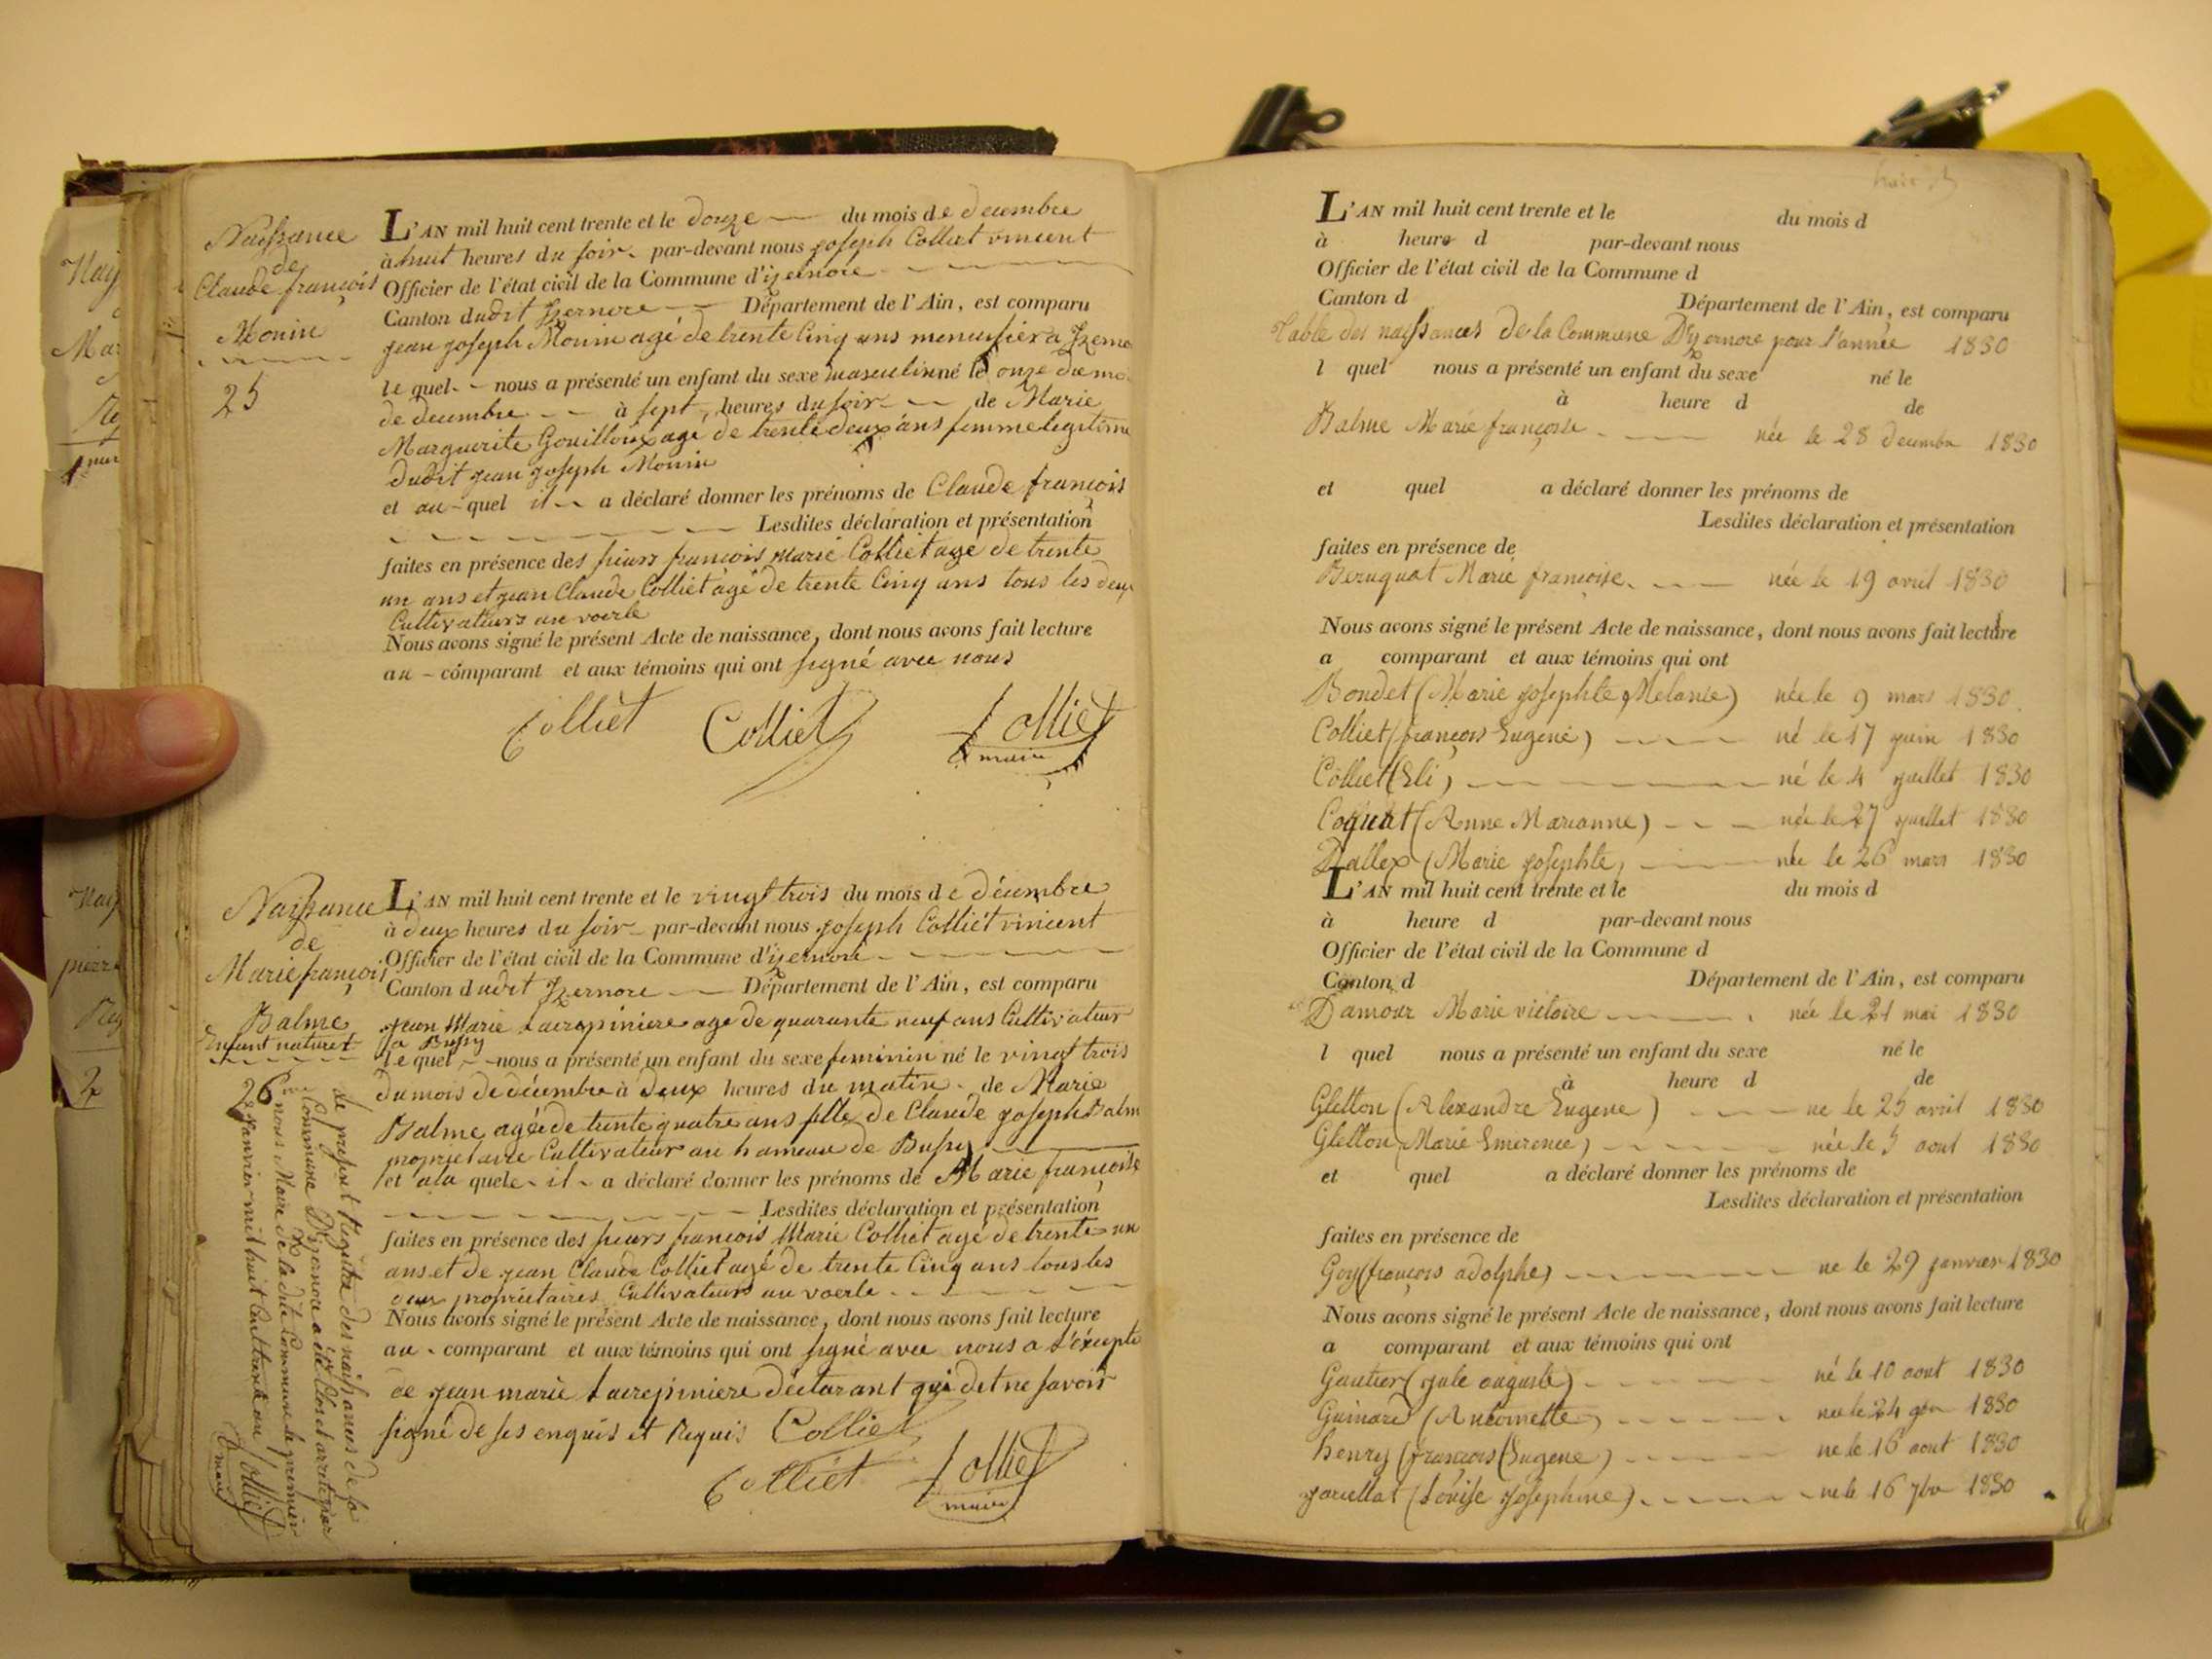 Naissance
de
Claude françois
Monin
25
L'AN mil huit cent trente et le douze du mois de decembre
à huit heures du soir par-devant nous joseph Colliet vincent
Officier de l'état civil de la Commune d'izernore
Canton dudit Izernore Département de l'Ain, est comparu
jean joseph Monin agé de trente Cinq ans menuisier a Izerno
le quel nous a présenté un enfant du sexe masculin né le onze du mo
de decembre à sept heures du soir de Marie
Marguerite Gouilloux agé de trente deux ans femme legitime
dudit jean joseph Monin
et au quel il a déclaré donner les prénoms de Claude françois
Lesdites déclaration et présentation
faites en présence des sieurs françois marie Colliet agé de trente
un ans et jean Claude Colliet agé de trente Cinq ans tous les deux
Cultivateurs au voerle
Nous avons signé le présent Acte de naissance, dont nous avons fait lecture
au comparant et aux témoins qui ont signé avec nous
Colliet Colliet Colliet
maire
Naissance
de
Marie françois
Balme
Enfant naturel
26
L'AN mil huit cent trente et le vingt trois du mois de décembre
à deux heures du soir par-devant nous joseph Colliet vincent
Officier de l'état civil de la Commune d'izernore
Canton dudit Izernore Département de l'Ain, est comparu
jean Marie Lacrepiniere agé de quarante neuf ans Cultivateur
a Bussy
le quel nous a présenté un enfant du sexe feminin né le vingt trois
du mois de décembre à deux heures du matin de Marie
Balme agée de trente quatre ans fille de Claude joseph Balm
proprietaire Cultivateur au hameau de Bussy
et a la quele il a déclaré donner les prénoms de Marie françoise
Lesdites déclaration et présentation
faites en présence des sieurs françois Marie Colliet agé de trente un
ans et de jean Claude Colliet agé de trente Cinq ans tous les
deux proprietaires Cultivateurs au voerle
Nous avons signé le présent Acte de naissance, dont nous avons fait lecture
au comparant et aux témoins qui ont signé avec nous a l'éxcepté
de jean marie Lacrepiniere déclarant qui dit ne savoir
signé de ses enquis et Requis Colliet
Colliet Colliet
maire
Le présent Registre des naissances de la
Commune D'izernore a été Clos et arreté par
nous Maire de la dite Commune le premier
janvier mil huit Cent trente un Colliet
maire
L'AN mil huit cent trente et le du mois d
à heure d par-devant nous
Officier de l'état civil de la Commune d
Canton d Département de l'Ain, est comparu
Table des naissances de la Commune D'izernore pour l'année 1830
l quel nous a présenté un enfant du sexe né le
à heure d de
Balme Marie françoise née le 28 decembre 1830
et quel a déclaré donner les prénoms de
Lesdites déclaration et présentation
faites en présence de
Beruquat Marie françoise née le 19 avril 1830
Nous avons signé le présent Acte de naissance, dont nous avons fait lecture
a comparant et aux témoins qui ont
Bondet (Marie josephte Melanie) née le 9 mars 1830
Colliet (françois Eugene) né le 17 juin 1830
Colliet (Eli) né le 4 juillet 1830
Coquat (Anne Marianne) née le 27 juillet 1830
Dallex (Marie josephte) née le 26 mars 1830
L'AN mil huit cent trente et le du mois d
à heure d par-devant nous
Officier de l'état civil de la Commune d
Canton d Département de l'Ain, est comparu
Damour Marie victoire née le 21 mai 1830
l quel nous a présenté un enfant du sexe né le
à heure d de
Gletton (Alexandre Eugene) ne le 25 avril 1830
Gletton (Marie Emerence) née le 5 aout 1830
et quel a déclaré donner les prénoms de
Lesdites déclaration et présentation
faites en présence de
Goy (françois adolphe) ne le 29 janvier 1830
Nous avons signé le présent Acte de naissance, dont nous avons fait lecture
a comparant et aux témoins qui ont
Gautier (jule auguste) né le 10 aout 1830
Guinard (Antoinette) née le 24 1830
henry (françois Eugene) ne le 16 aout 1830
(Louise josephine) ne le 16 7bre 1830